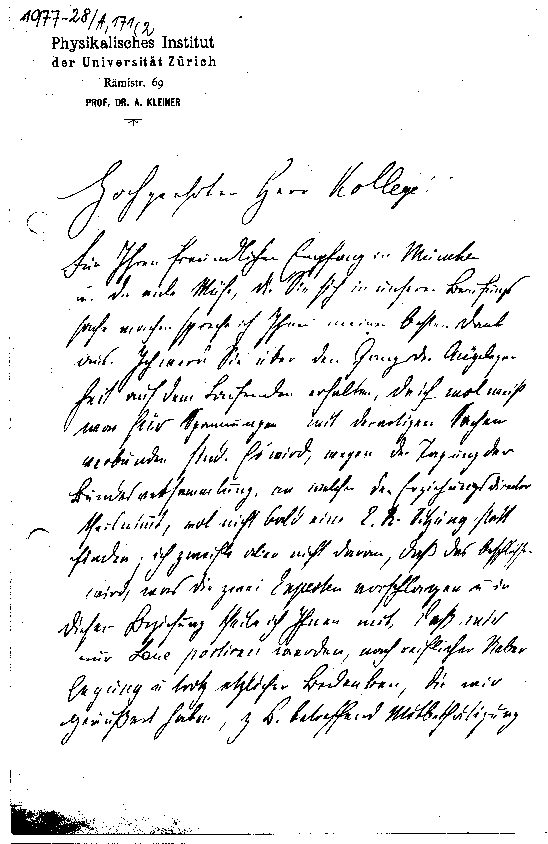 1977-28/A,171(2
Physikalisches Institut
der Universität Zürich
Rämistr. 69
PROF. DR. A. KLEINER
Hochgeehrter Herr Kollege!
Für Ihren freundlichen Empfang in München
u. die viele Mühe, die Sie sich in unserer Berufungs
sache machen spreche ich Ihnen meinen besten Dank
aus. Ich werde Sie über den Gang der Angelegen
heit auf dem Laufenden erhalten, da ich wol weiß
was für Spannungen mit derartigen Sachen
verbunden sind. Es wird, wegen der Tagung der
Bundesversammlung, an welcher der Erziehungsdirector
theilnimmt, wol nicht bald eine E. R. Sitzung statt
finden; ich zweifle aber nicht daran, daß das beschlossen
wird, was die zwei Experten vorschlagen u in
dieser Beziehung theile ich Ihnen mit, daß wir
nur Laue portiren werden, nach reiflicher Ueber
legung u trotz etzlicher Bedenken, die wir
geäußert haben, z B. betreffend Mitbethätigung